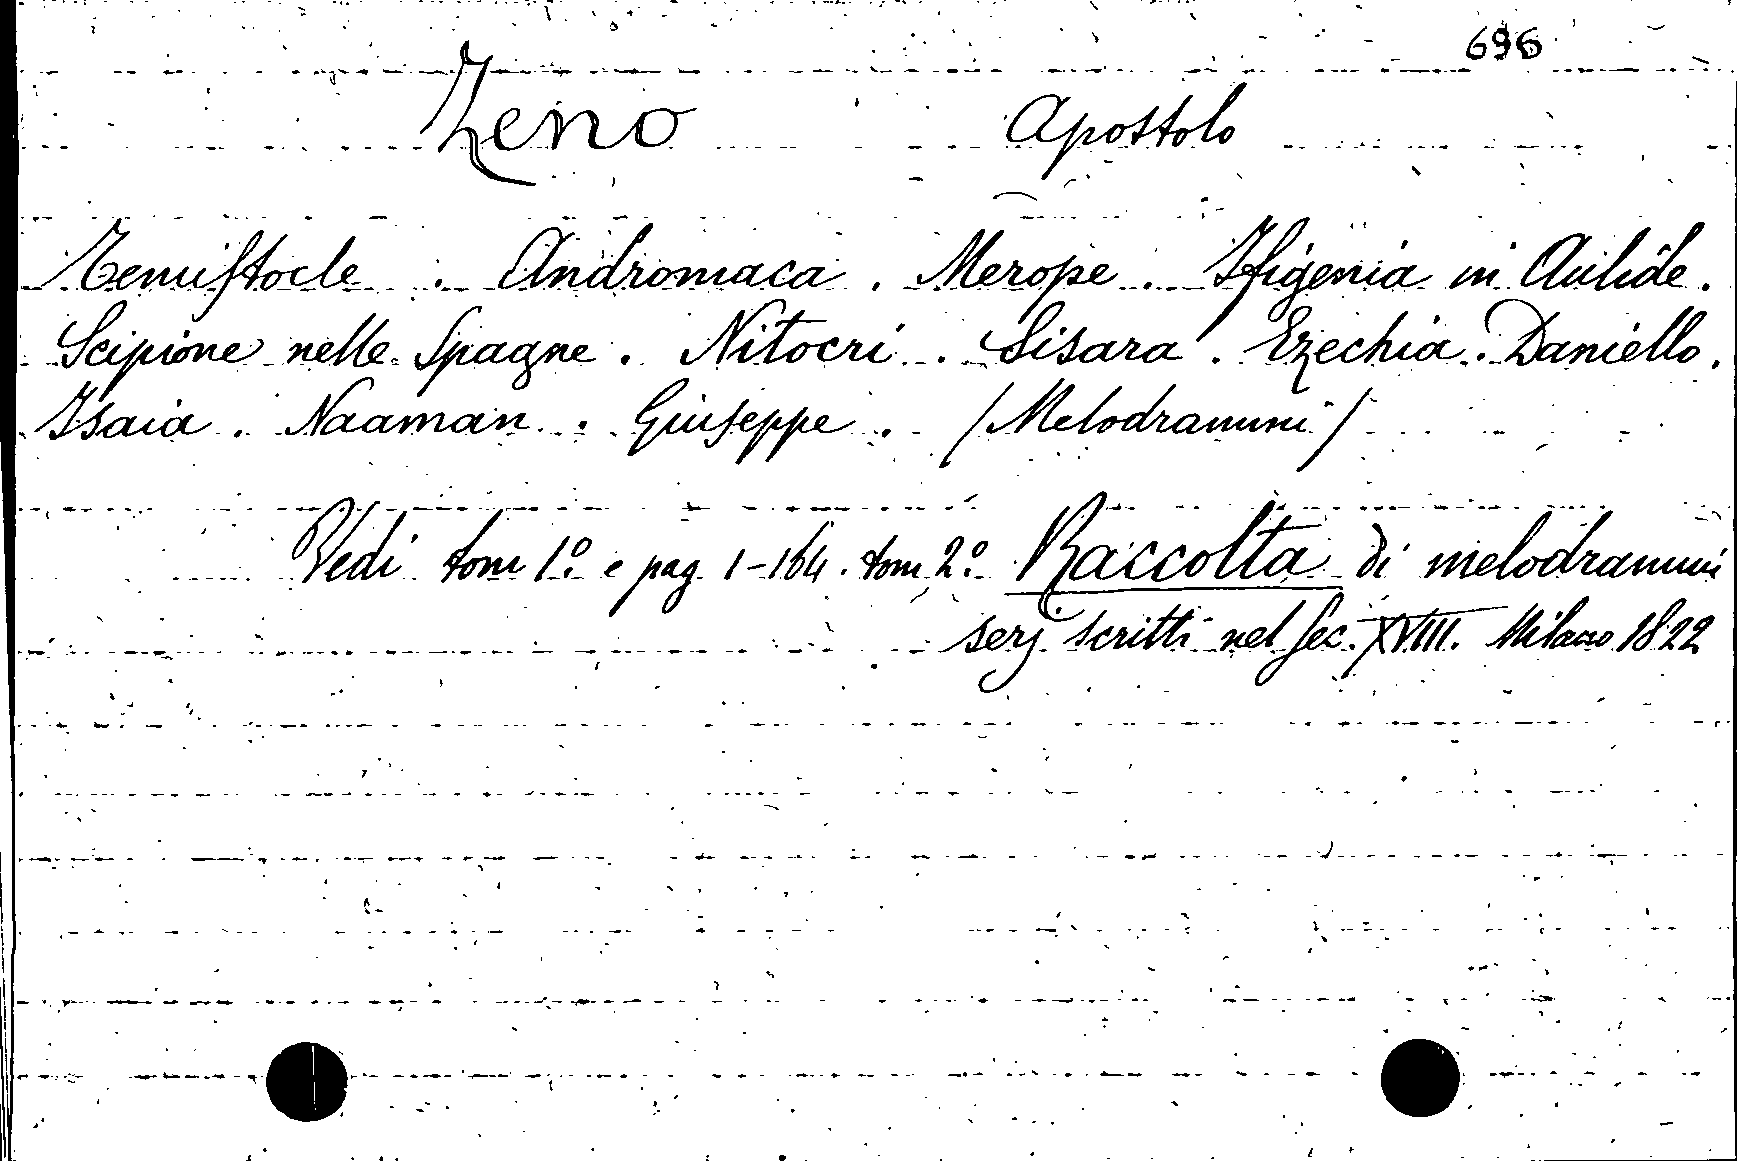 696
Zeno Apostolo
Temistocle . Andromaca . Merope . Ifigenia in Aulide .
Scipione nelle Spagne . Nitocri . Sisara . Ezechia . Daniello .
Isaia . Naaman . Giuseppe . /Melodrammi/
Vedi tom 1º e pag. 1-164 . tom 2º Raccolta di melodrammi
serj scritti nel sec. XVIII. Milano 1822